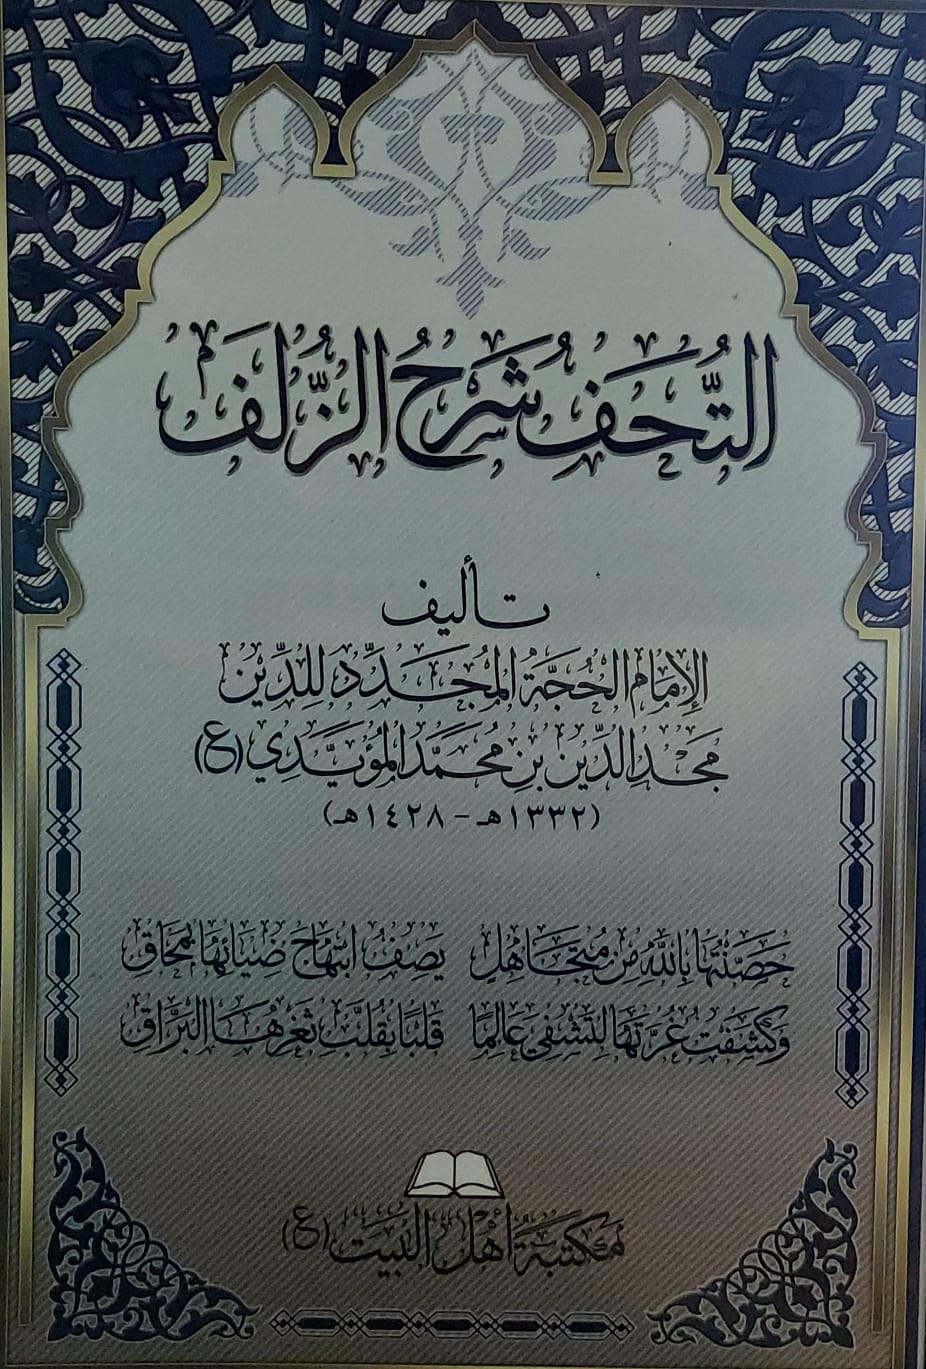 التُّحَفُ شَرْحُ الزُّلَفِ
تأليف
الإمَامِ الحُجَّةِ المُجَدِّدِ لِلدِّيْنِ
مَجْدِ الدِّيْنِ بْنِ مُحَمَّدٍ المُؤَيَّدِي (ع)
(١٣٣٢هـ - ١٤٢٨هـ)
حَصَّنْتُهَا بِاللهِ مِنْ مُتَجَاهِلٍ يَصِفُ ابْتِهَاجَ ضِيَائِهَا بِمَحَاقِ
وَكَشَفْتُ غُرَّتَهَا لِتَشْفِيَ عَالِمًا قَلْبًا يُقَلِّبُ ثَغْرِهَا البَرَّاقِ
مكتبة أهل البيت (ع)